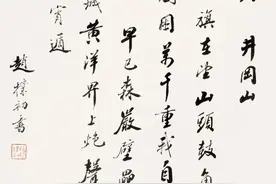 井岡山
旗在望山頭鼓角
圍困萬千重我自
早已森嚴壁壘
城黄洋界上炮聲
宵遁
趙樸初書